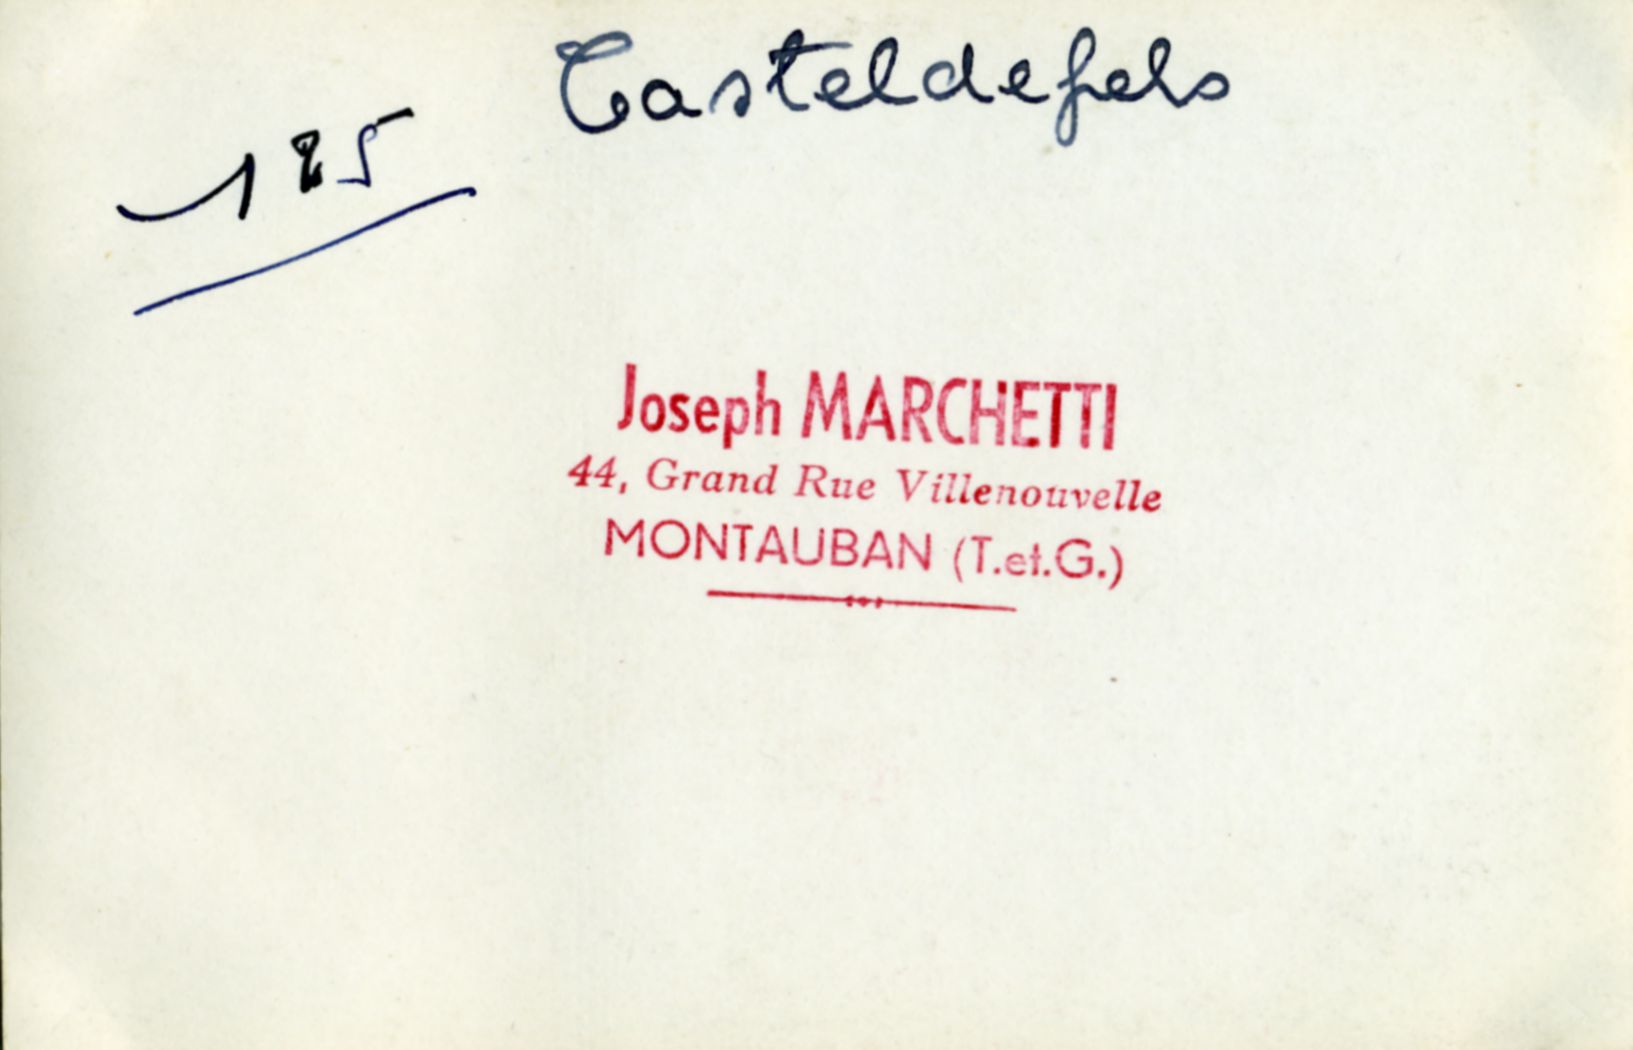 Casteldefels
Joseph MARCHETTI
44, Grand Rue Villenouvelle
MONTAUBAN (T.et.G.)